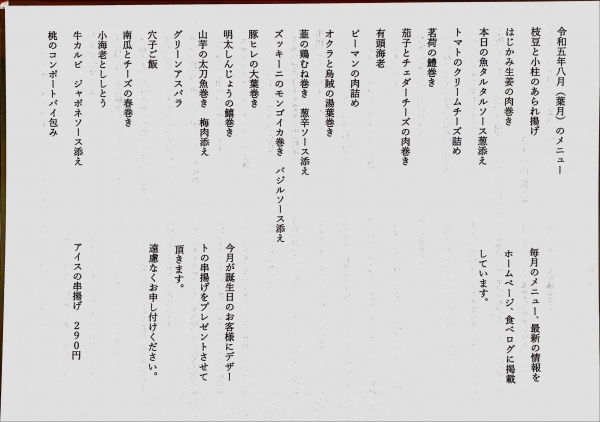 令和五年八月（葉月）のメニュー
枝豆と小柱のあられ揚げ
はじかみ生姜の肉巻き
本日の魚タルタルソース葱添え
トマトのクリームチーズ詰め
茗荷の鱧巻き
茄子とチェダーチーズの肉巻き
有頭海老
ピーマンの肉詰め
オクラと烏賊の湯葉巻き
韮の鶏むね巻き　葱辛ソース添え
ズッキーニのモンゴイカ巻き　バジルソース添え
豚ヒレの大葉巻き
明太しんじょうの鱚巻き
山芋の太刀魚巻き　梅肉添え
グリーンアスパラ
穴子ご飯
南瓜とチーズの春巻き
小海老とししとう
牛カルビ　ジャポネソース添え
桃のコンポートパイ包み
毎月のメニュー、最新の情報を
ホームページ、食べログに掲載
しています。
今月が誕生日のお客様にデザー
トの串揚げをプレゼントさせて
頂きます。
遠慮なくお申し付けください。
アイスの串揚げ　２９０円